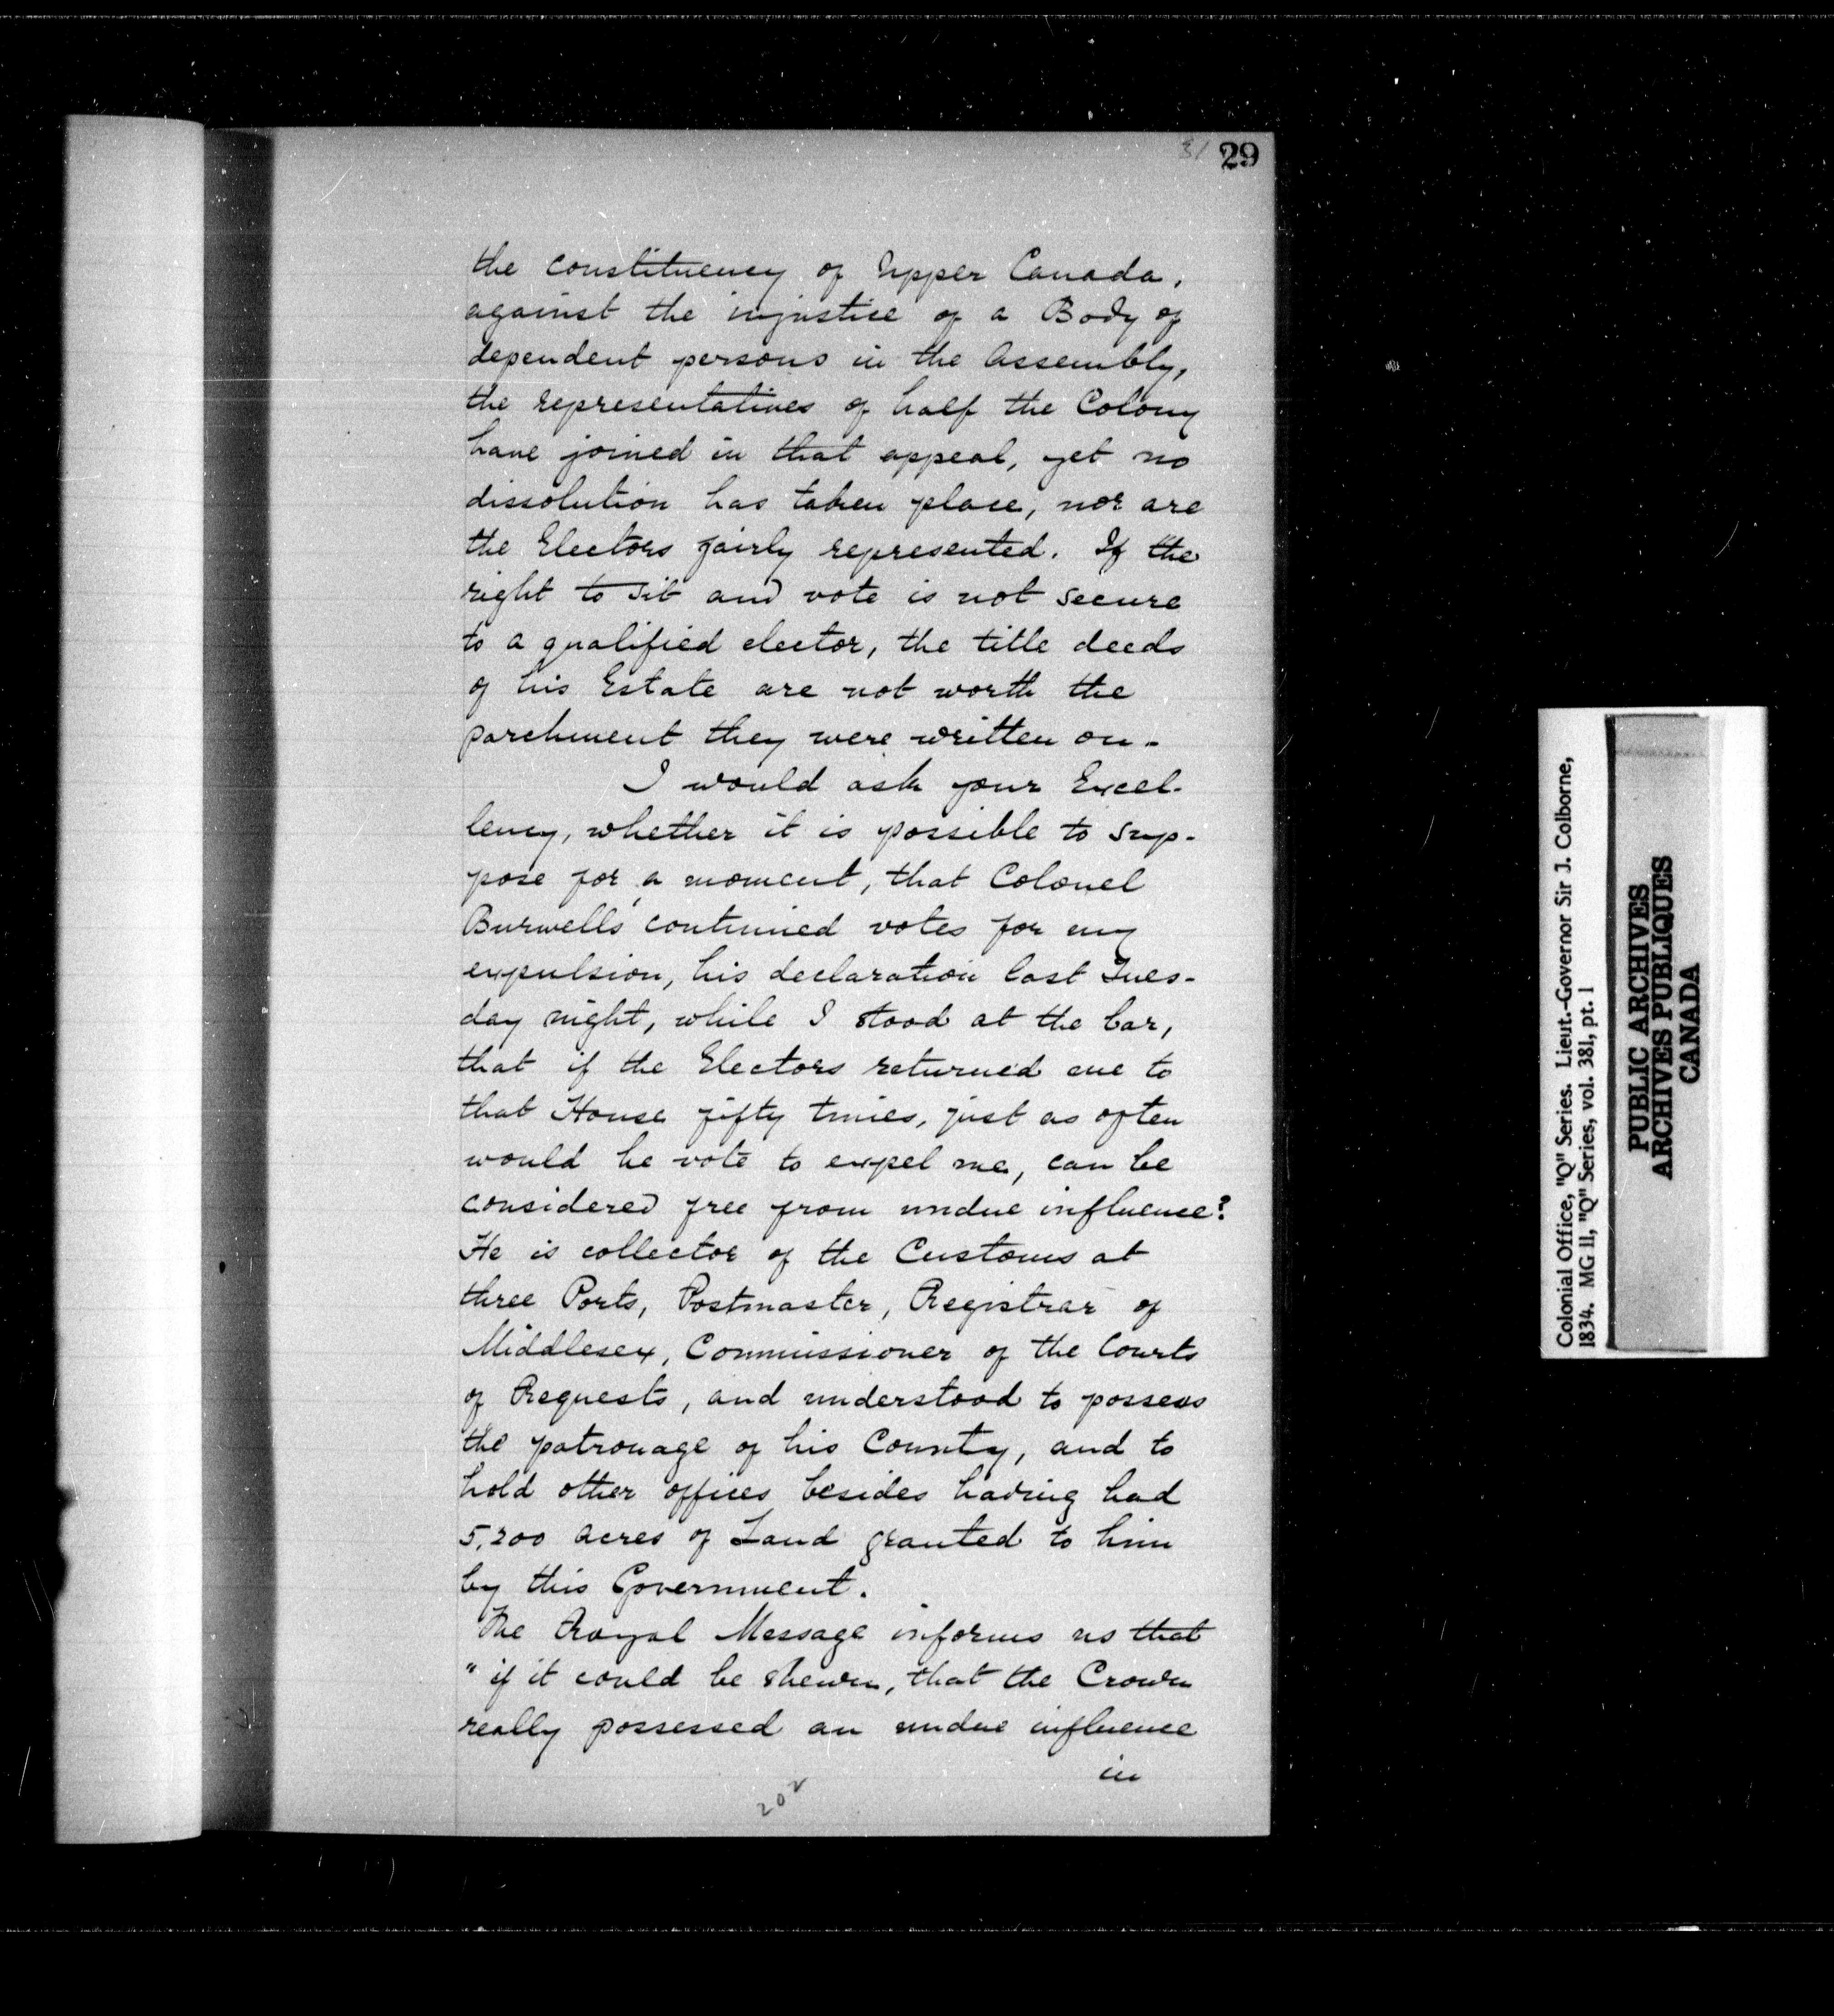 31 29
the constituency of Upper Canada,
against the injustice of a Body of
dependent persons in the Assembly,
the representatives of half the Colony
have joined in that appeal, yet no
dissolution has taken place, nor are
the Electors fairly represented. If the
right to sit and vote is not secure
to a qualified elector, the title deeds
of his Estate are not worth the
parchment they were written on.
I would ask your Excel-
lency, whether it is possible to sup-
pose for a moment, that Colonel
Burwells continued votes for my
expulsion, his declaration last Tues-
day night, while I stood at the bar,
that if the Electors returned me to
that House fifty times, just as often
would he vote to expel me, can be
considered free from undue influence?
He is collector of the Customs at
three Ports, Postmaster, Registrar of
Middlesex, Commissioner of the Courts
of Requests, and understood to possess
the patronage of his County, and to
hold other offices besides having had
5,200 acres of Land granted to him
by this Government.
The Royal Message informs us that
" if it could be shewn, that the Crown
really possessed an undue influence
in
202
Colonial Office, "Q" Series. Lieut.-Governor Sir J. Colborne,
1834. MG 11, "Q" Series, vol. 381, pt. 1
PUBLIC ARCHIVES
ARCHIVES PUBLIQUES
CANADA